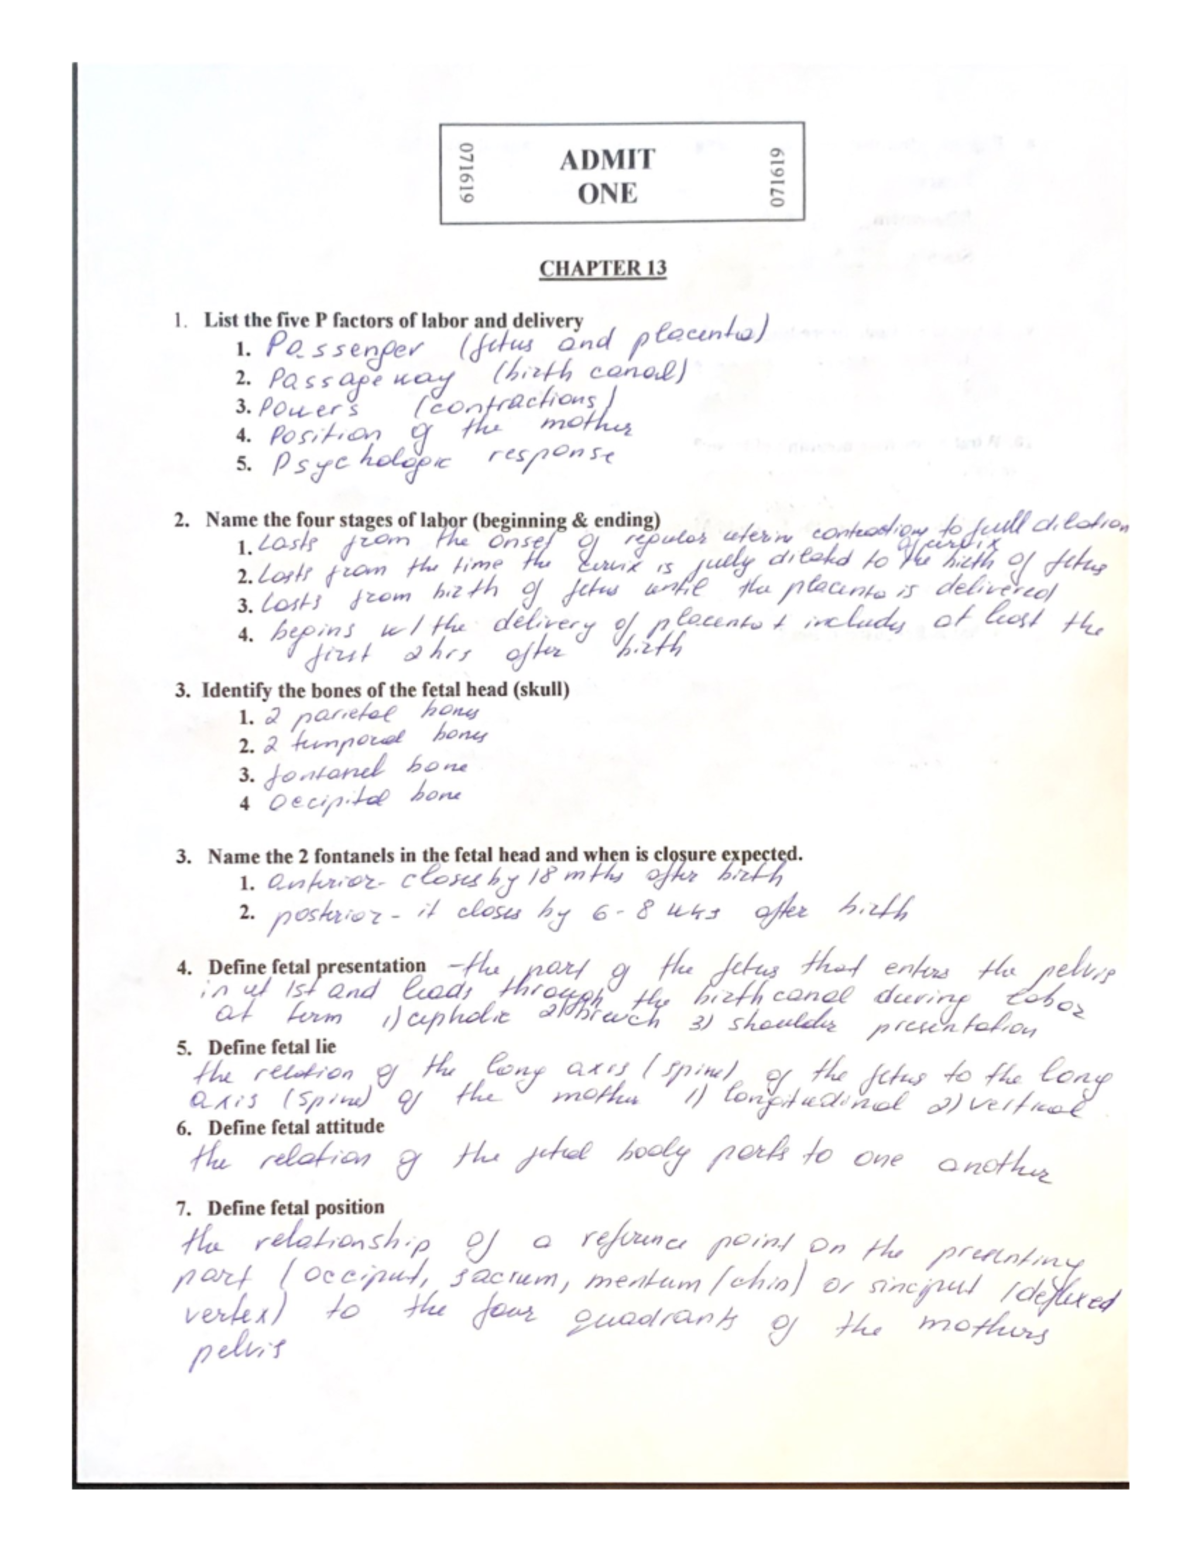 071619
ADMIT
ONE
071619
CHAPTER 13
1. List the five P factors of labor and delivery
1. Passenger (fetus and placenta)
2. Passageway (birth canal)
3. Powers (contractions)
4. Position of the mother
5. Psychologic response
2. Name the four stages of labor (beginning & ending)
1. Lasts from the onset of regular uterin contractions to full dilation
of cervix
2. Lasts from the time the cervix is fully dilated to the birth of fetus
3. Lasts from birth of fetus until the placenta is delivered
4. begins w/ the delivery of placenta + includes at least the
first 2 hrs after birth
3. Identify the bones of the fetal head (skull)
1. 2 parietal bones
2. 2 temporal bones
3. fontanel bone
4 Occipital bone
3. Name the 2 fontanels in the fetal head and when is closure expected.
1. anterior- closes by 18 mths after birth
2. posterior - it closes by 6-8 wks after birth
4. Define fetal presentation - the part of the fetus that enters the pelvis
in 1st and leads through the birth canal during labor
at term 1) cepholic 2) breech 3) shoulder presentation
5. Define fetal lie
the relation of the long axis (spine) of the fetus to the long
axis (spine) of the mother 1) longitudinal 2) vertical
6. Define fetal attitude
the relation of the fetal body parts to one another
7. Define fetal position
the relationship of a reference point on the presenting
part (occiput, sacrum, mentum (chin) or sinciput (deflexed
vertex) to the four quadrants of the mothers
pelvis